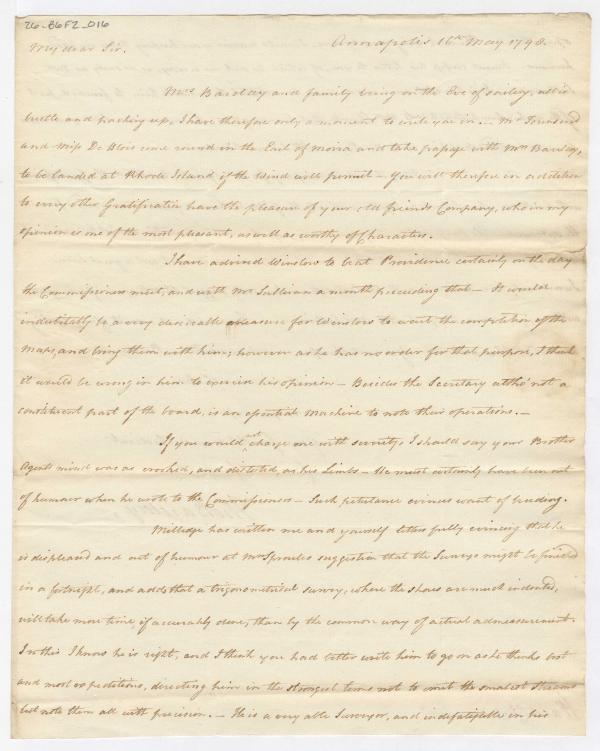 26_B6F2_016
Annapolis 16th May 1798.
My dear Sir.
Mrs. Barclay and family being on the Eve of sailing, all is
bustle and packing up, I have therefore only a moment to write you in. — Mr. Townsend
and Miss De Blois come round in the Earl of Moira and take passage with Mrs Barclay,
to be landed at Rhode Island if the Wind will permit — You will therefore in addition
to every other Gratification have the pleasure of your old friends Company, who in my
opinion is one of the most pleasant, as well as worthy of Characters.
I have advised Winslow to be at Providence certainly on the day
the Commissioners meet, and with Mr Sullivan a month preceeding that — It would
indubitably be a very desirable measure for Winslow to wait the completion of the
Maps, and bring them with him; however as he has no order for that purpose, I think
it would be wrong in him to exercise his opinion — Besides the Secretary altho' not a
constituent part of the board, is an essential Machine to note their operations. —
If you would not charge me with severity, I should say your Brother
Agents mind was as crooked, and distorted, as his Limbs — He must certainly have been out
of humour when he wrote to the Commissioners — Such petulance evinces want of breeding.
Milledge has written me and yourself letters fully evincing that he
is displeased and out of humour at Mr Sproules suggestion that the Surveys might be finished
in a fortnight, and adds that a trigonometrical survey, where the shores are much indented,
will take more time, if accurately done, than by the common way of actual admeasurement.
In this I know he is right, and I think you had better write him to go on as he thinks best
and most expeditious, directing him in the strongest terms not to omit the smallest Streams
but note them all with precision. — He is a very able Surveyor, and indefatigable in his